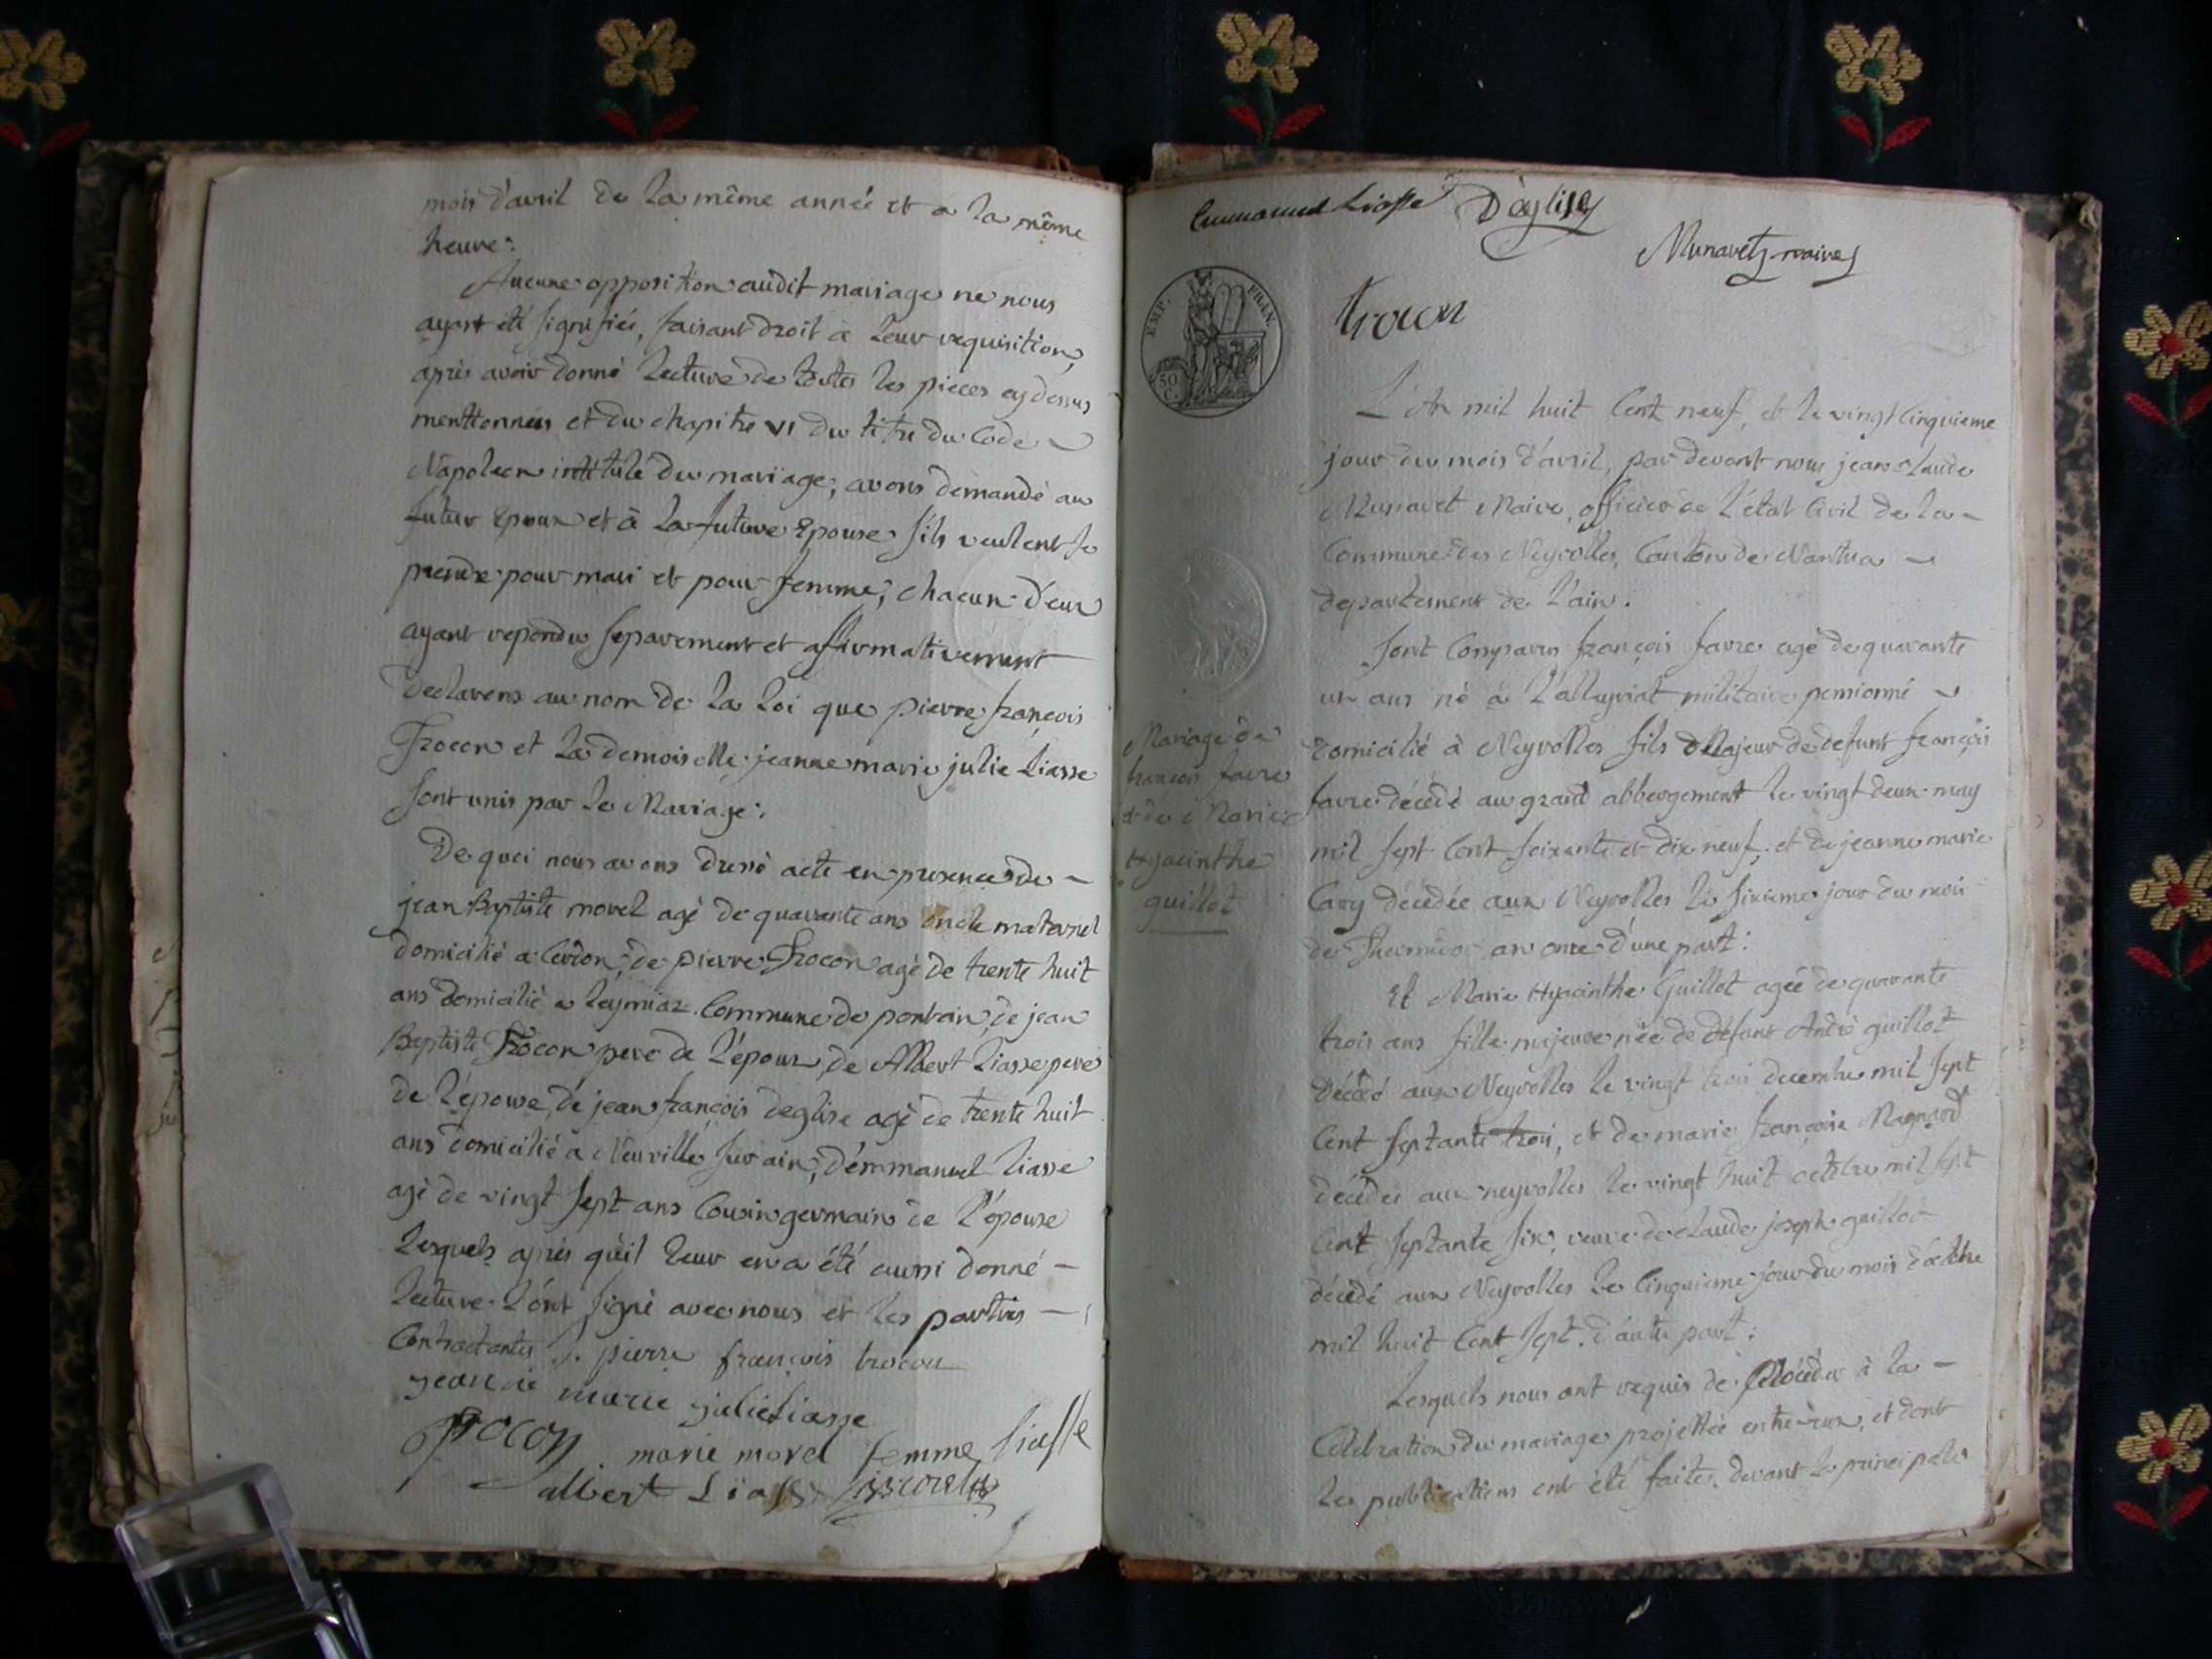 mois d'avril de la même année et a la même
heure:
Aucune opposition audit mariage ne nous
ayant été signifiée, faisant droit à leur requisition,
après avoir donné lecture de toutes les pieces cy dessus
menttonnées et du chapitre VI du titre du Code
Napoleon intitulé du mariage; avons demandé au
futur Epoux et à la future Epouse s'ils veulent se
prendre pour mari et pour femme; chacun d'eux
ayant repondu separement et affirmativement
declarons au nom de la loi que pierre françois
Trocon et la demoiselle jeanne marie julie Liasse
sont unis par le Mariage:
De quoi nous avons dressé acte en presence de
jean Baptiste morel agé de quarante ans oncle maternel
domicilié a Cerdon; de pierre Trocon agé de trente huit
ans domicilié a leymiaz Commune de poncin, de jean
Baptiste Trocon pere de l'époux, de Albert Liasse pere
de l'épouse, de jean françois deglise agé de trente huit
ans domicilié a Neuville sur ain; d'émmanuel liasse
agé de vingt sept ans Cousin germain de l'épouse
lesquels après qu'il leur en a été aussi donné
lecture l'ont signé avec nous et les parties
Contractantes J. pierre françois trocon
jeanne marie julie liasse
Trocon marie morel femme liasse
albert Liasse
Emmanuel Liasse Déglise
Munavet maire
EMP. FRAN.
50 C.
trocon
L'An mil huit Cent neuf, et le vingt Cinquieme
jour du mois d'avril, par devant nous jean claude
Munavet Maire, officier de l'état Civil de la
Commune des Neyrolles, Canton de Nantua
departement de l'ain.
Sont Comparus françois favre agé de quarante
un ans né à Lalleyriat militaire pensionné
Domicilié à Neyrolles fils Majeur de defunt françois
favre décédé au grand abbergement le vingt deux may
mil sept Cent soixante et dix neuf, et de jeanne marie
Cary décédée aux Neyrolles le sixieme jour du mois
de Thermidor an onze d'une part:
Mariage de
francois favre
et de Marie
Hyacinthe
guillot
Et Marie Hyacinthe Guillot agée de quarante
trois ans fille majeure née de defunt André guillot
Décédé aux Neyrolles le vingt trois decembre mil sept
Cent septante trois, et de marie françoise Magnard
décédée aux neyrolles le vingt huit octobre mil sept
Cent septante six, veuve de claude joseph guillot
décédé aux Neyrolles le Cinquieme jour du mois d'octobre
mil huit Cent sept. d'autre part:
Lesquels nous ont requis de procéder à la
Celebration du mariage projettée entre eux, et dont
les publications ont été faites devant la principale